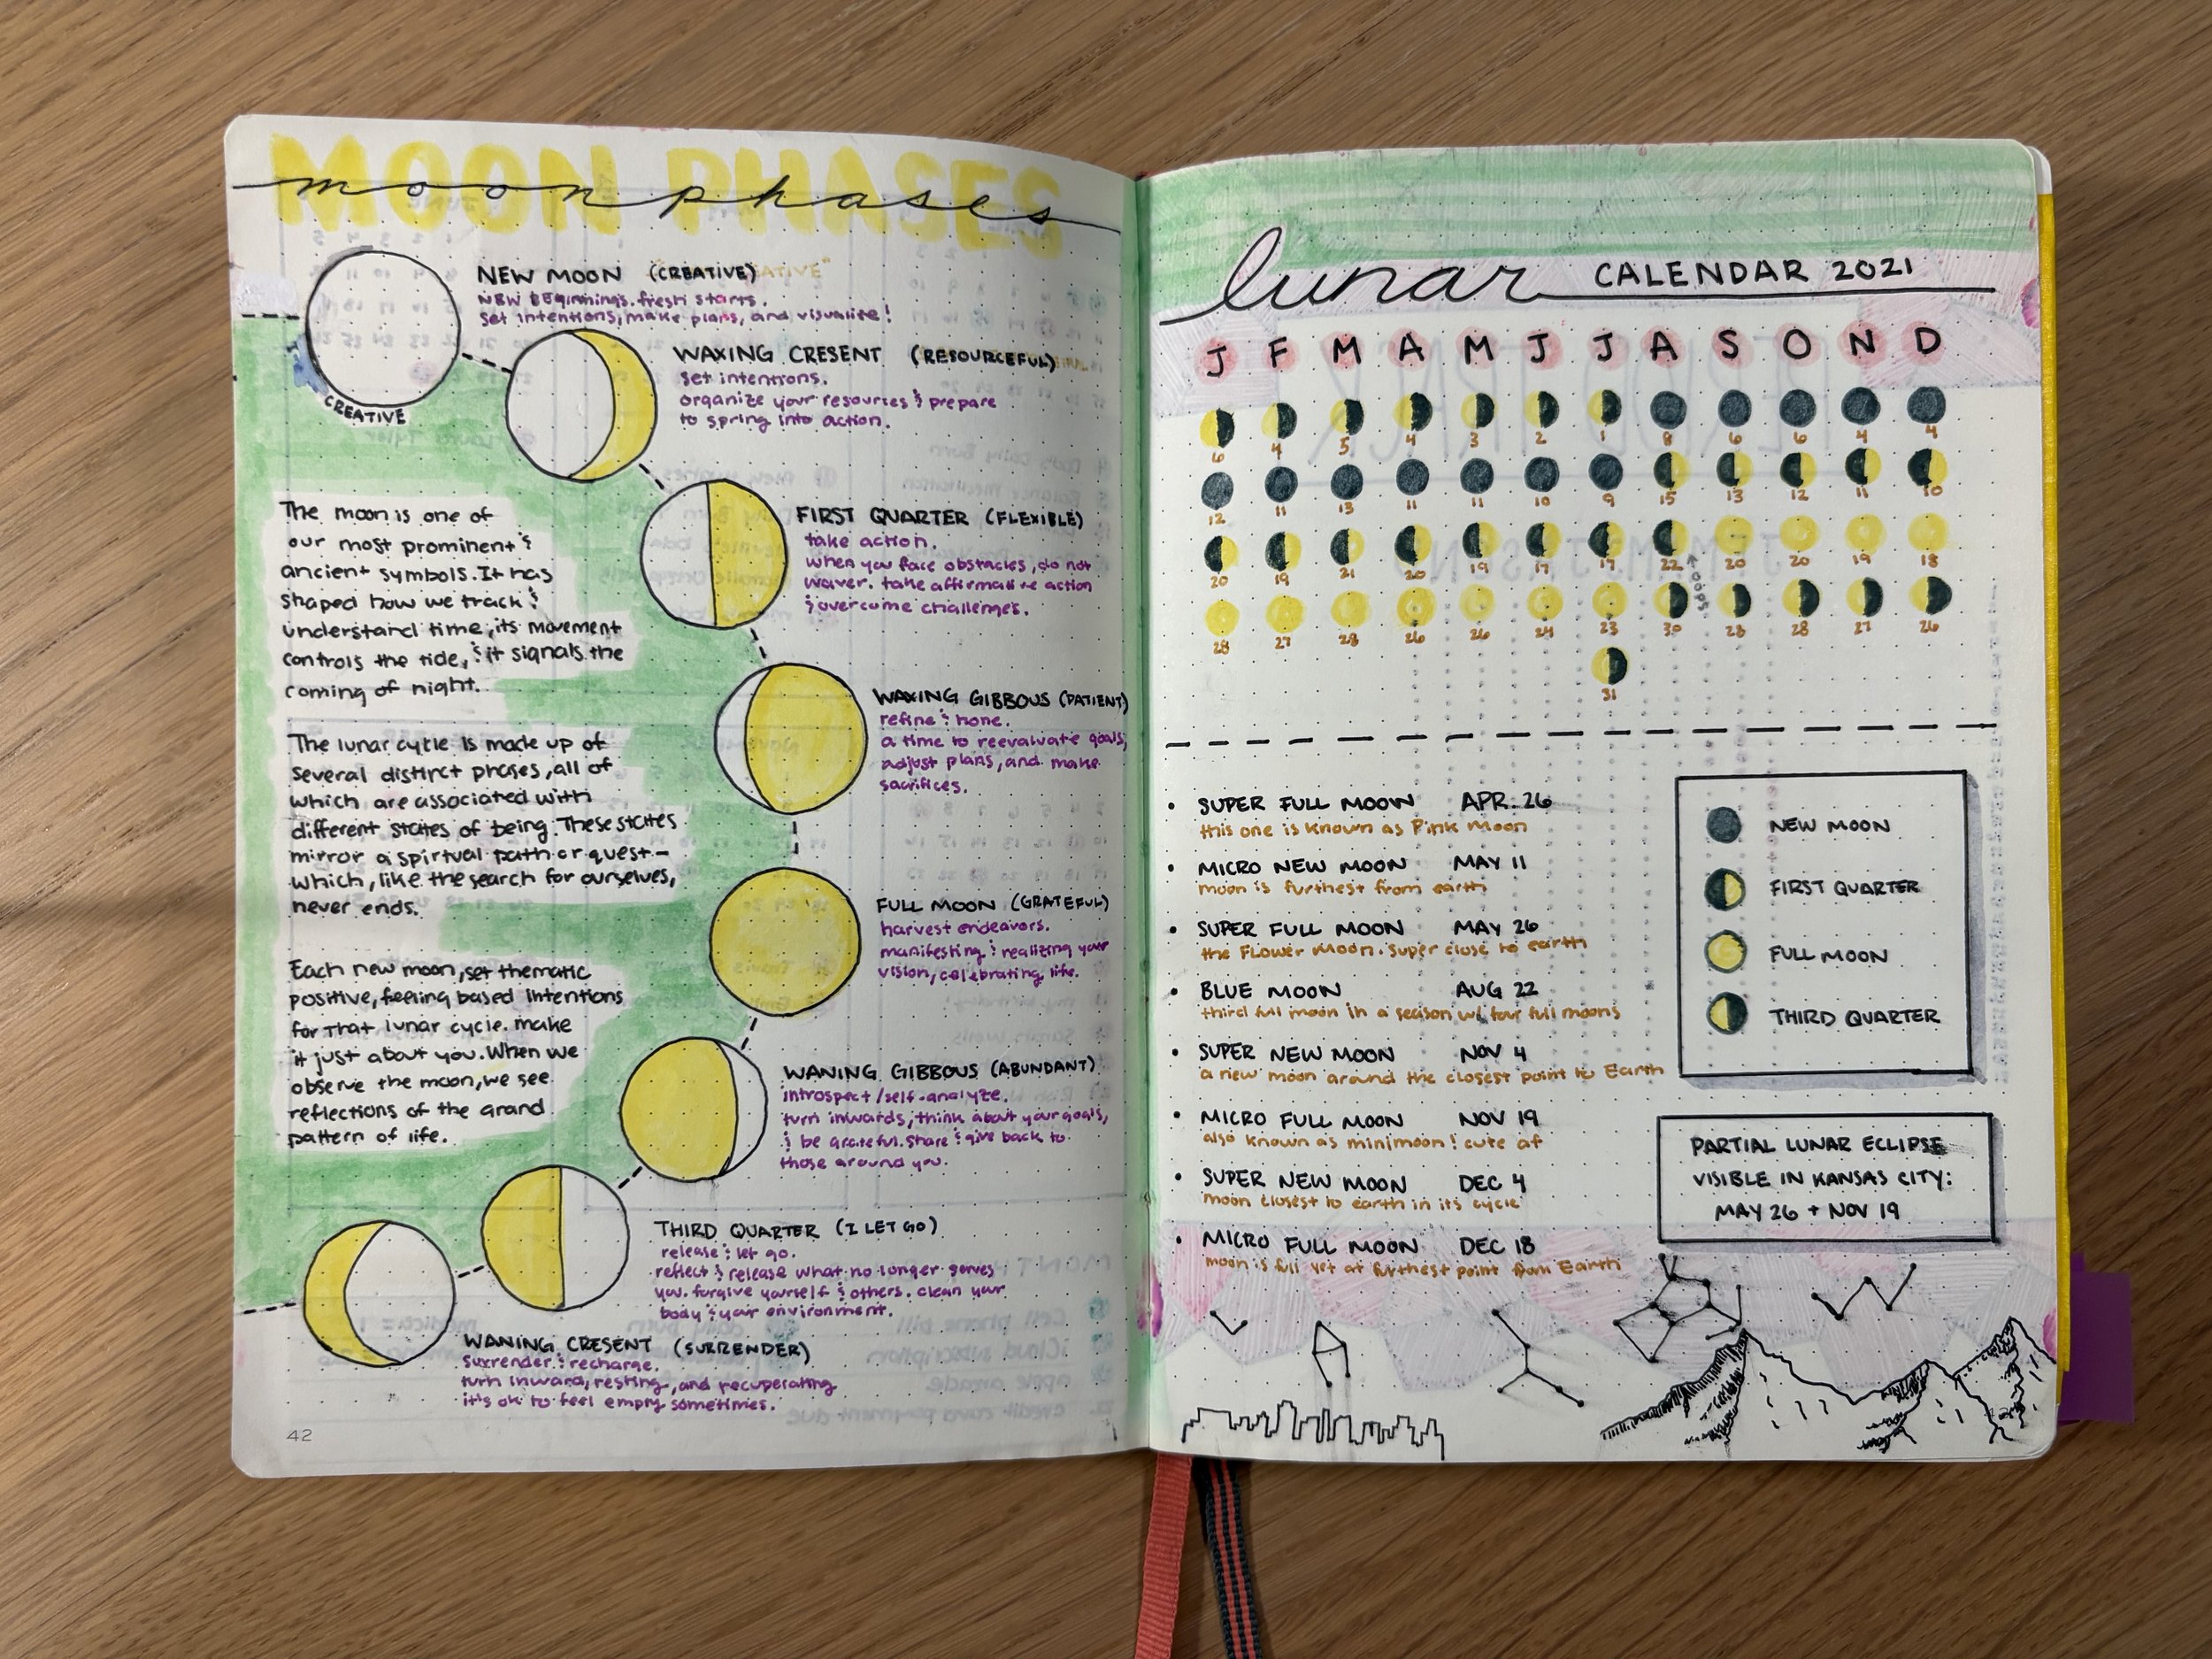 MOON PHASES
moon phases
NEW MOON (CREATIVE)
NEW BEGINNINGS. fresh starts.
set intentions, make plans, and visualize!
CREATIVE
WAXING CRESENT (RESOURCEFUL)
set intentions.
organize your resources & prepare
to spring into action.
FIRST QUARTER (FLEXIBLE)
take action.
when you face obstacles, do not
waver. take affirmative action
& overcome challenges.
WAXING GIBBOUS (PATIENT)
refine & hone.
a time to reevaluate goals,
adjust plans, and make
sacrifices.
FULL MOON (GRATEFUL)
harvest endeavors.
manifesting & realizing your
vision, celebrating life.
WANING GIBBOUS (ABUNDANT)
introspect/self-analyze.
turn inwards, think about your goals,
& be grateful. share & give back to
those around you.
THIRD QUARTER (I LET GO)
release & let go.
reflect & release what no longer serves
you. forgive yourself & others. clean your
body & your environment.
WANING CRESENT (SURRENDER)
surrender & recharge.
turn inward, resting, and recuperating
it's ok to feel empty sometimes.
The moon is one of
our most prominent &
ancient symbols. It has
shaped how we track &
understand time, its movement
controls the tide, & it signals the
coming of night.
The lunar cycle is made up of
several distinct phases, all of
which are associated with
different states of being. These states
mirror a spirtual path or quest-
which, like the search for ourselves,
never ends.
Each new moon, set thematic
positive, feeling based intentions
for that lunar cycle. make
it just about you. When we
observe the moon, we see
reflections of the grand
pattern of life.
42
lunar CALENDAR 2021
J F M A M J J A S O N D
6 4 5 4 3 2 1 8 6 6 4 4
12 11 13 11 11 10 9 15 13 12 11 10
20 19 21 20 19 17 17 22 20 20 19 18
oops
28 27 28 26 26 24 23 30 28 28 27 26
31
SUPER FULL MOON APR. 26
this one is known as Pink Moon
MICRO NEW MOON MAY 11
moon is furthest from earth
SUPER FULL MOON MAY 26
the Flower Moon. super close to earth
BLUE MOON AUG 22
third full moon in a season w/ four full moons
SUPER NEW MOON NOV 4
a new moon around the closest point to Earth
MICRO FULL MOON NOV 19
also known as minimoon! cute af
SUPER NEW MOON DEC 4
moon closest to earth in its cycle
MICRO FULL MOON DEC 18
moon is full yet at furthest point from Earth
NEW MOON
FIRST QUARTER
FULL MOON
THIRD QUARTER
PARTIAL LUNAR ECLIPSE
VISIBLE IN KANSAS CITY:
MAY 26 + NOV 19